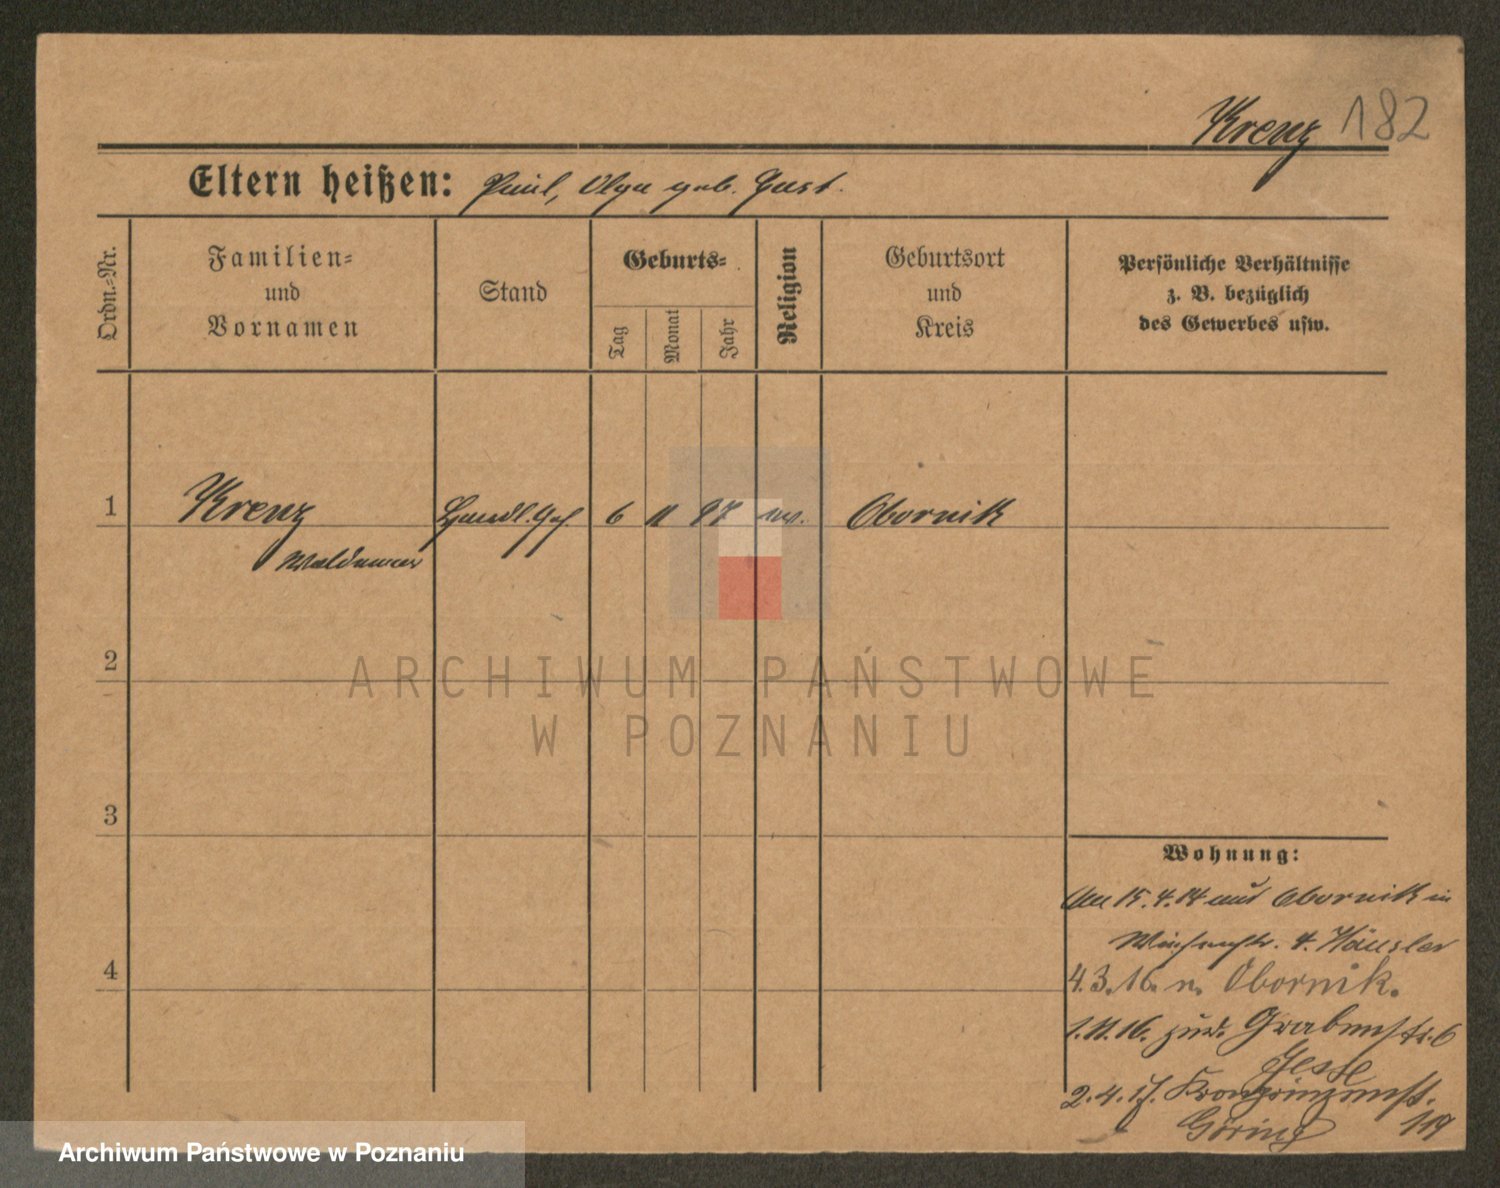 Krenz 182
Eltern heißen: Paul, Olga geb. Gust.
Ordn.-Nr.
Familien-
und
Vornamen
Stand
Geburts-
Tag
Monat
Jahr
Religion
Geburtsort
und
Kreis
Persönliche Verhältnisse
z. B. bezüglich
des Gewerbes usw.
1 Krenz Handl. Geh. 6 11 97 ev. Obornik
Waldemar
2
ARCHIWUM PAŃSTWOWE
W POZNANIU
3
Wohnung:
15.4.14 aus Obornik in
4. Häusler
4
4.3.16. n. Obornik.
1.11.16. zur. Grabenstr. 6
2.4.17. Kronprinzenst.
Göring 119
Archiwum Państwowe w Poznaniu